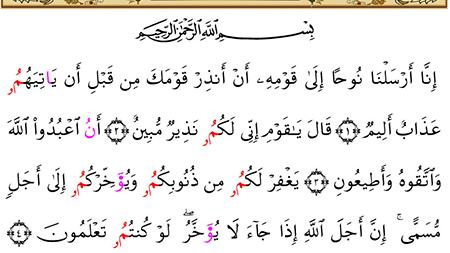 بِسْمِ ٱللَّهِ ٱلرَّحْمَٰنِ ٱلرَّحِيمِ
إِنَّا أَرْسَلْنَا نُوحًا إِلَىٰ قَوْمِهِۦ أَنْ أَنذِرْ قَوْمَكَ مِن قَبْلِ أَن يَاتِيَهُمُۥ
عَذَابٌ أَلِيمٌ ﴿١﴾ قَالَ يَـٰقَوْمِ إِنِّى لَكُمُۥ نَذِيرٌ مُّبِينٌ ﴿٢﴾ أَنُ ٱعْبُدُوا۟ ٱللَّهَ
وَٱتَّقُوهُ وَأَطِيعُونِ ﴿٣﴾ يَغْفِرْ لَكُمُۥ مِن ذُنُوبِكُمُۥ وَيُوَخِّرْكُمُۥ إِلَىٰ أَجَلٍ
مُّسَمًّى ۚ إِنَّ أَجَلَ ٱللَّهِ إِذَا جَآءَ لَا يُوَخَّرُ ۖ لَوْ كُنتُمُۥ تَعْلَمُونَ ﴿٤﴾